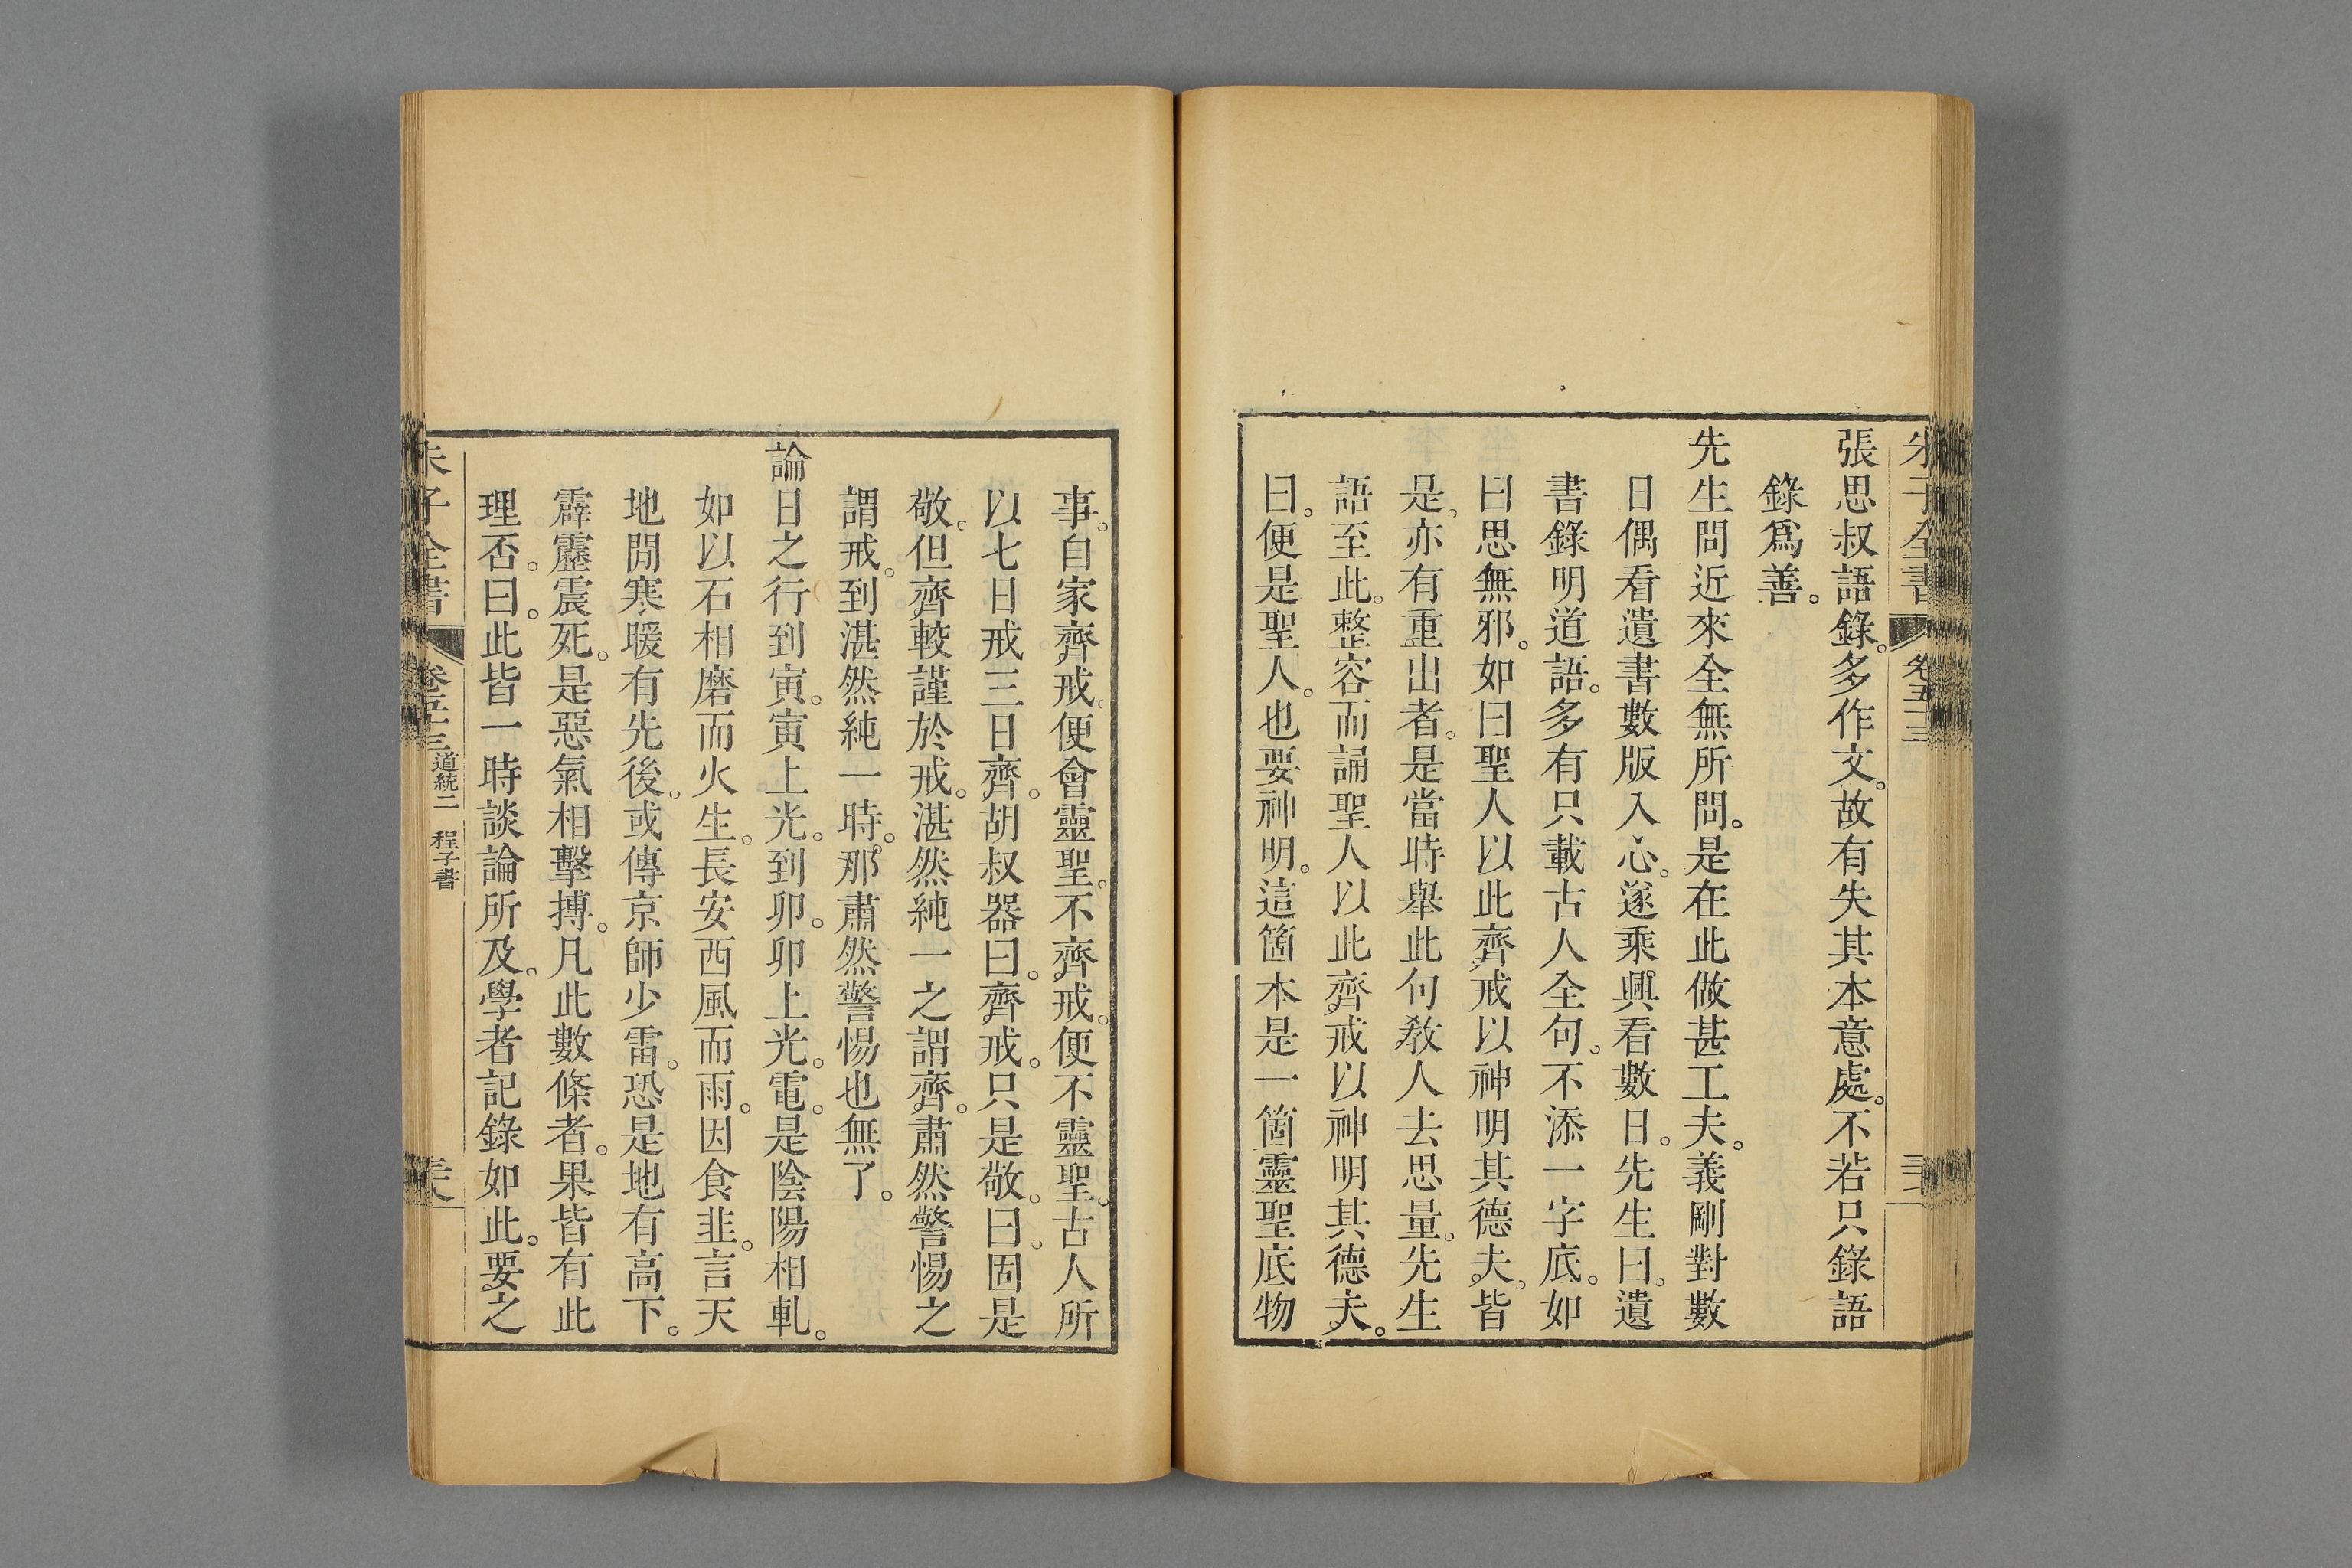 張思叔語錄。多作文。故有失其本意處。不若只錄語
錄爲善。
先生問近來全無所問。是在此做甚工夫。義剛對數
日偶看遺書數版入心。遂乘興看數日。先生曰。遺
書錄明道語。多有只載古人全句。不添一字底。如
曰思無邪。如曰聖人以此齊戒以神明其德夫。皆
是。亦有重出者。是當時舉此句敎人去思量。先生
語至此。整容而誦聖人以此齊戒以神明其德夫。
曰。便是聖人。也要神明。這箇本是一箇靈聖底物
事。自家齊戒。便會靈聖。不齊戒。便不靈聖。古人所
以七日戒三日齊。胡叔器曰。齊戒。只是敬。曰。固是
敬。但齊較謹於戒。湛然純一之謂齊。肅然警惕之
謂戒。到湛然純一時。那肅然警惕也無了。
論日之行到寅。寅上光。到卯。卯上光。電。是陰陽相軋。
如以石相磨而火生。長安西風而雨。因食韭。言天
地閒寒暖有先後。或傳京師少雷。恐是地有高下。
霹靂震死。是惡氣相擊搏。凡此數條者。果皆有此
理否。曰。此皆一時談論所及。學者記錄如此。要之
朱子全書 卷五十三 道統二 程子書